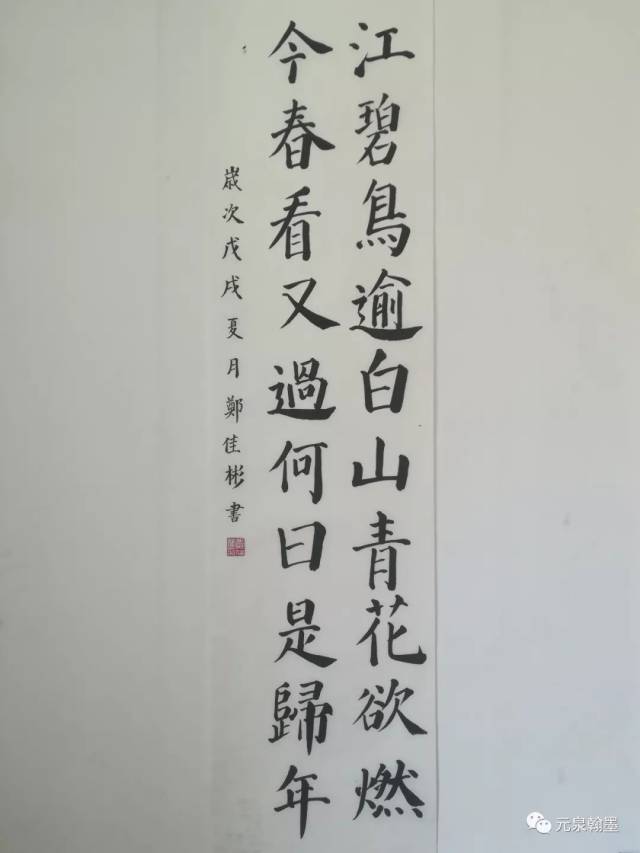 江碧鳥逾白山青花欲燃
今春看又過何日是歸年
歲次戊戌夏月鄭佳彬書
元泉翰墨